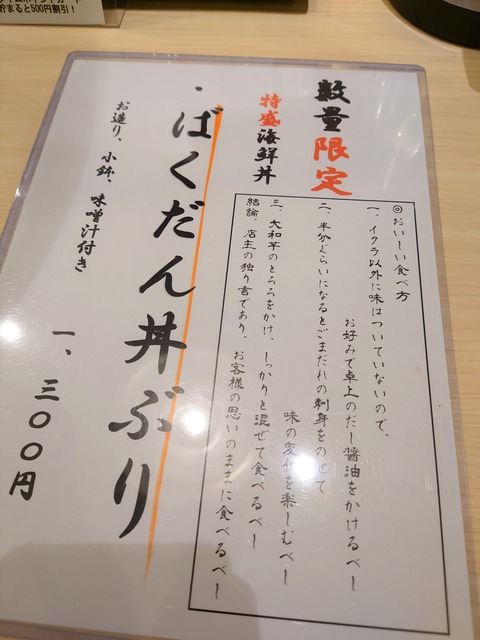 貯まると500円割引！
数量限定
特盛海鮮丼
◎おいしい食べ方
一、イクラ以外に味はついていないので、
お好みで卓上のだし醤油をかけるべし
二、半分ぐらいになるとごまだれの刺身をのせて
味の変化を楽しむべし
三、大和芋のとろろをかけ、しっかりと混ぜて食べるべし
結論、店主の独り言であり、お客様の思いのままに食べるべし
・ばくだん丼ぶり
お造り、小鉢、味噌汁付き
一、三〇〇円